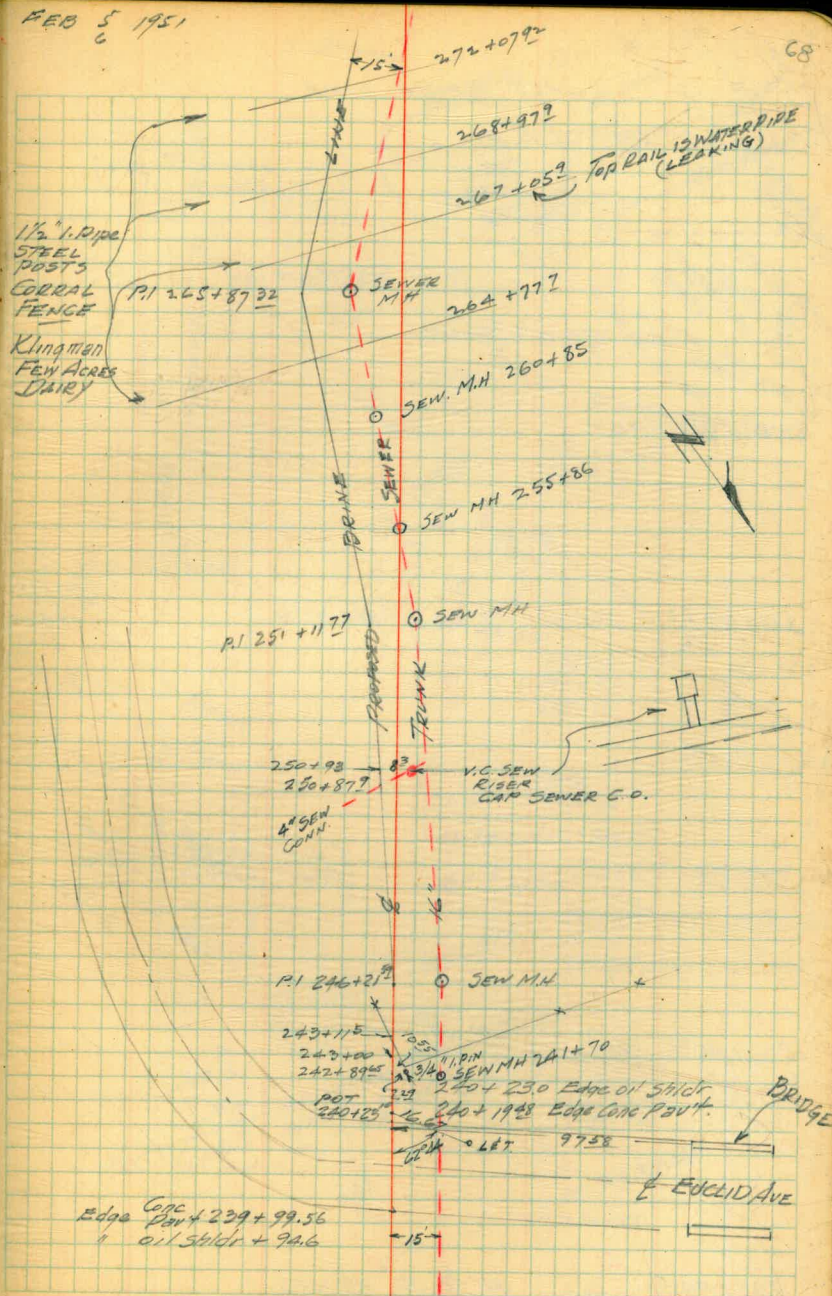 FEB 5 1951
6
68
15'
272+07 92
268+97 9
267+05 9
TOP RAIL IS WATER PIPE
(LEAKING)
LINE
1 1/2" I. Pipe
STEEL
POSTS
CORRAL
FENCE
Klingman
FEW ACRES
DAIRY
P.I 265+87 32
SEWER
M H
264+77 7
SEW. M.H 260+85
SEWER
BRINE
SEW MH 255+86
N
SEW MH
P.I 251+11 77
PROPOSED
TRUNK
250+93
250+87 9
8 3
V.C. SEW
RISER
CAP SEWER C.O.
4" SEW
CONN.
℄
16"
P.I 246+21
SEW M.H
243+11 5
243+00
242+89
3/4" I. PIN
SEW MH 241+70
240+23.0 Edge oil Shldr
POT
240+25
240+19 48 Edge Conc Pav't.
BRIDGE
LET
97 58
℄ EUCLID AVE
Edge Conc Pav't 239+99.56
" oil Shldr + 94.6
15'